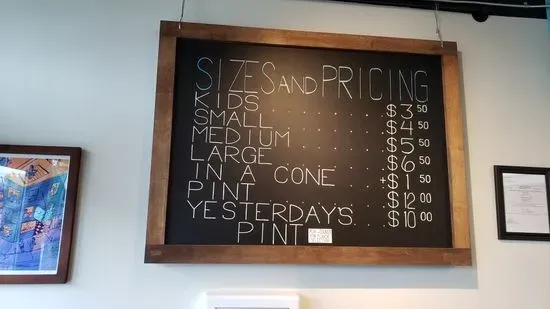 SIZES AND PRICING
KIDS . . . . . . . . $3 50
SMALL . . . . . . . $4 50
MEDIUM . . . . . . $5 50
LARGE . . . . . . . $6 50
IN A CONE . . . +$1 50
PINT . . . . . . . . $12 00
YESTERDAYS . . . $10 00
PINT